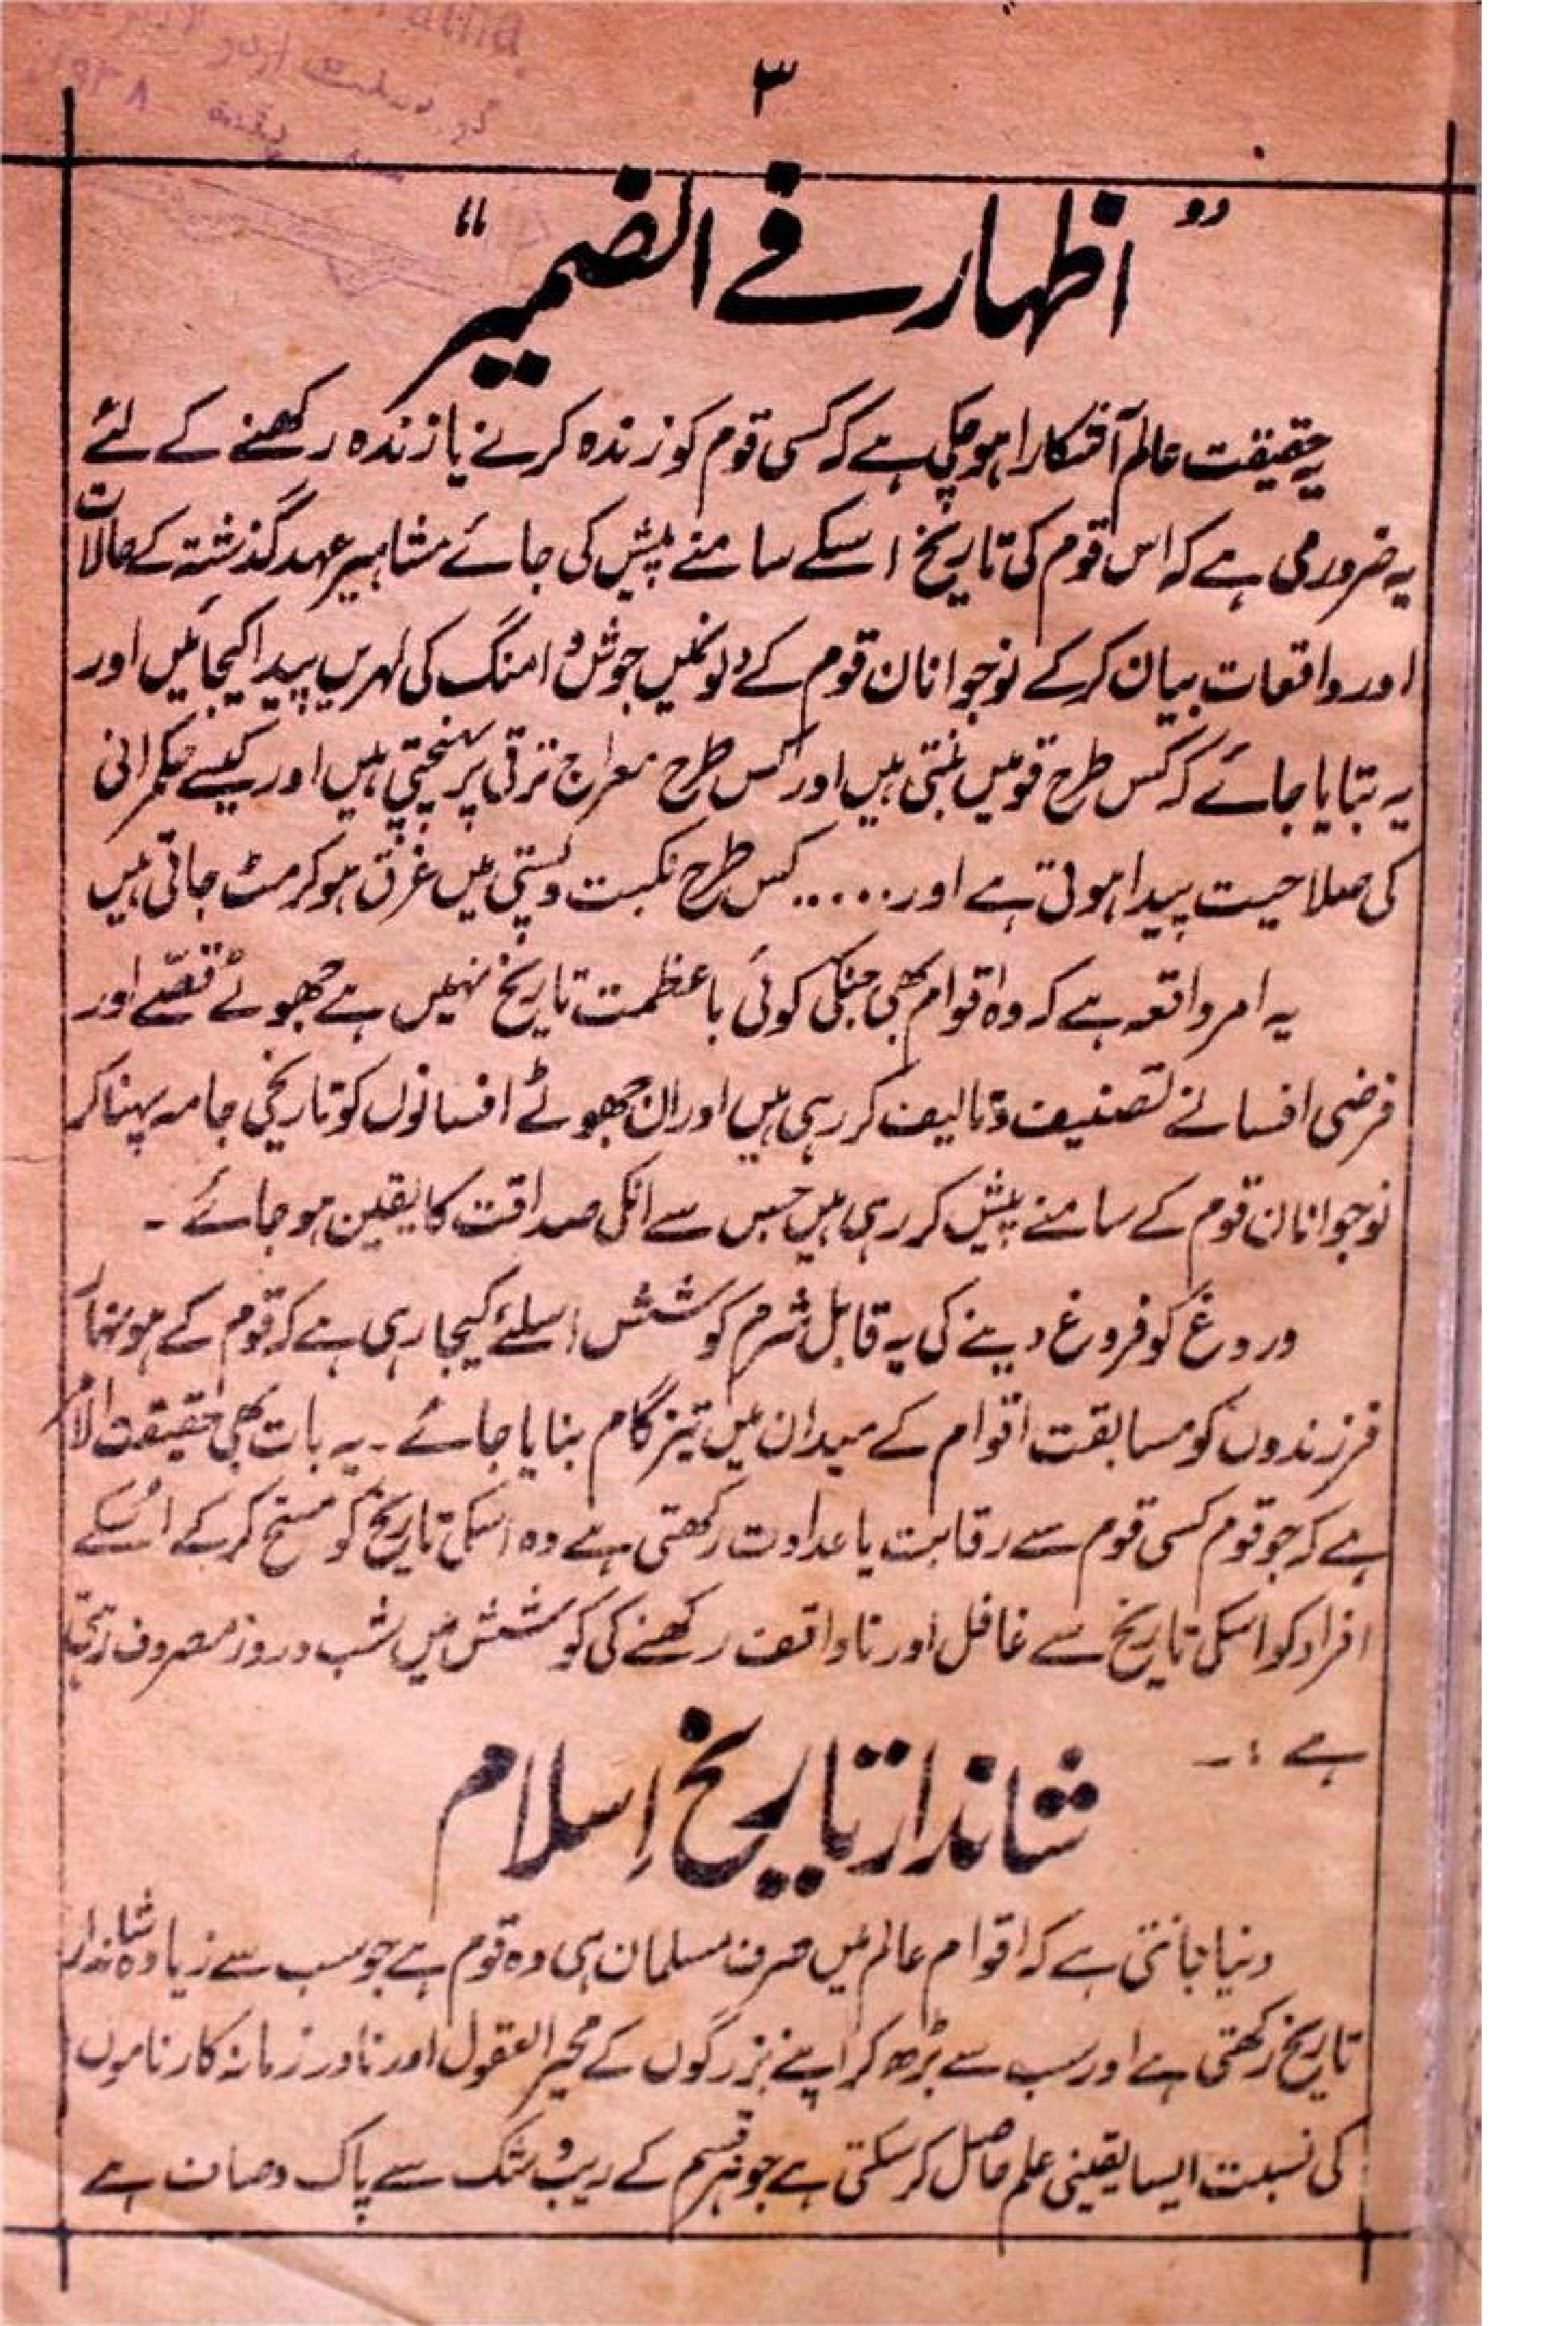 ۳
”اظہار فے الضمیر“
یہ حقیقت عالم آشکارا ہوچکی ہے کہ کسی قوم کو زندہ کرنے یا زندہ رکھنے کے لئے
یہ ضروری ہے کہ اس قوم کی تاریخ اسکے سامنے پیش کی جائے مشاہیر عہد گذشتہ کے حالات
اور واقعات بیان کرکے نوجوانان قوم کے دلونمیں جوش و امنگ کی لہریں پیدا کیجائیں اور
یہ بتایا جائے کہ کس طرح قومیں بنتی ہیں اور کس طرح معراج ترقی پر پہنچتی ہیں اور کیسے حکمرانی
کی صلاحیت پیدا ہوتی ہے اور ..... کس طرح نکبت و پستی میں غرق ہوکر مٹ جاتی ہیں
یہ امر واقعہ ہے کہ وہ اقوام بھی جنکی کوئی باعظمت تاریخ نہیں ہے جھوٹے قصّے اور
فرضی افسانے تصنیف و تالیف کر رہی ہیں اور ان جھوٹے افسانوں کو تاریخی جامہ پہنا کر
نوجوانان قوم کے سامنے پیش کر رہی ہیں جس سے انکی صداقت کا یقین ہو جائے ۔
دروغ کو فروغ دینے کی یہ قابل شرم کوشش اسلئے کیجا رہی ہے کہ قوم کے ہونہار
فرزندوں کو مسابقت اقوام کے میدان میں تیز گام بنایا جائے ۔ یہ بات بھی حقیقت الامر
ہے کہ جو قوم کسی قوم سے رقابت یا عداوت رکھتی ہے وہ اسکی تاریخ کو مسخ کرکے اُسکے
افراد کو اسکی تاریخ سے غافل اور ناواقف رکھنے کی کوشش میں شب و روز مصروف رہتی
ہے :۔
شاندار تاریخ اِسلام
دنیا جانتی ہے کہ اقوام عالم میں صرف مسلمان ہی وہ قوم ہے جو سب سے زیادہ شاندار
تاریخ رکھتی ہے اور سب سے بڑھ کر اپنے بزرگوں کے محیر العقول اور نادر زمانہ کارناموں
کی نسبت ایسا یقینی علم حاصل کرسکتی ہے جو ہر قسم کے ریب و شک سے پاک و صاف ہے